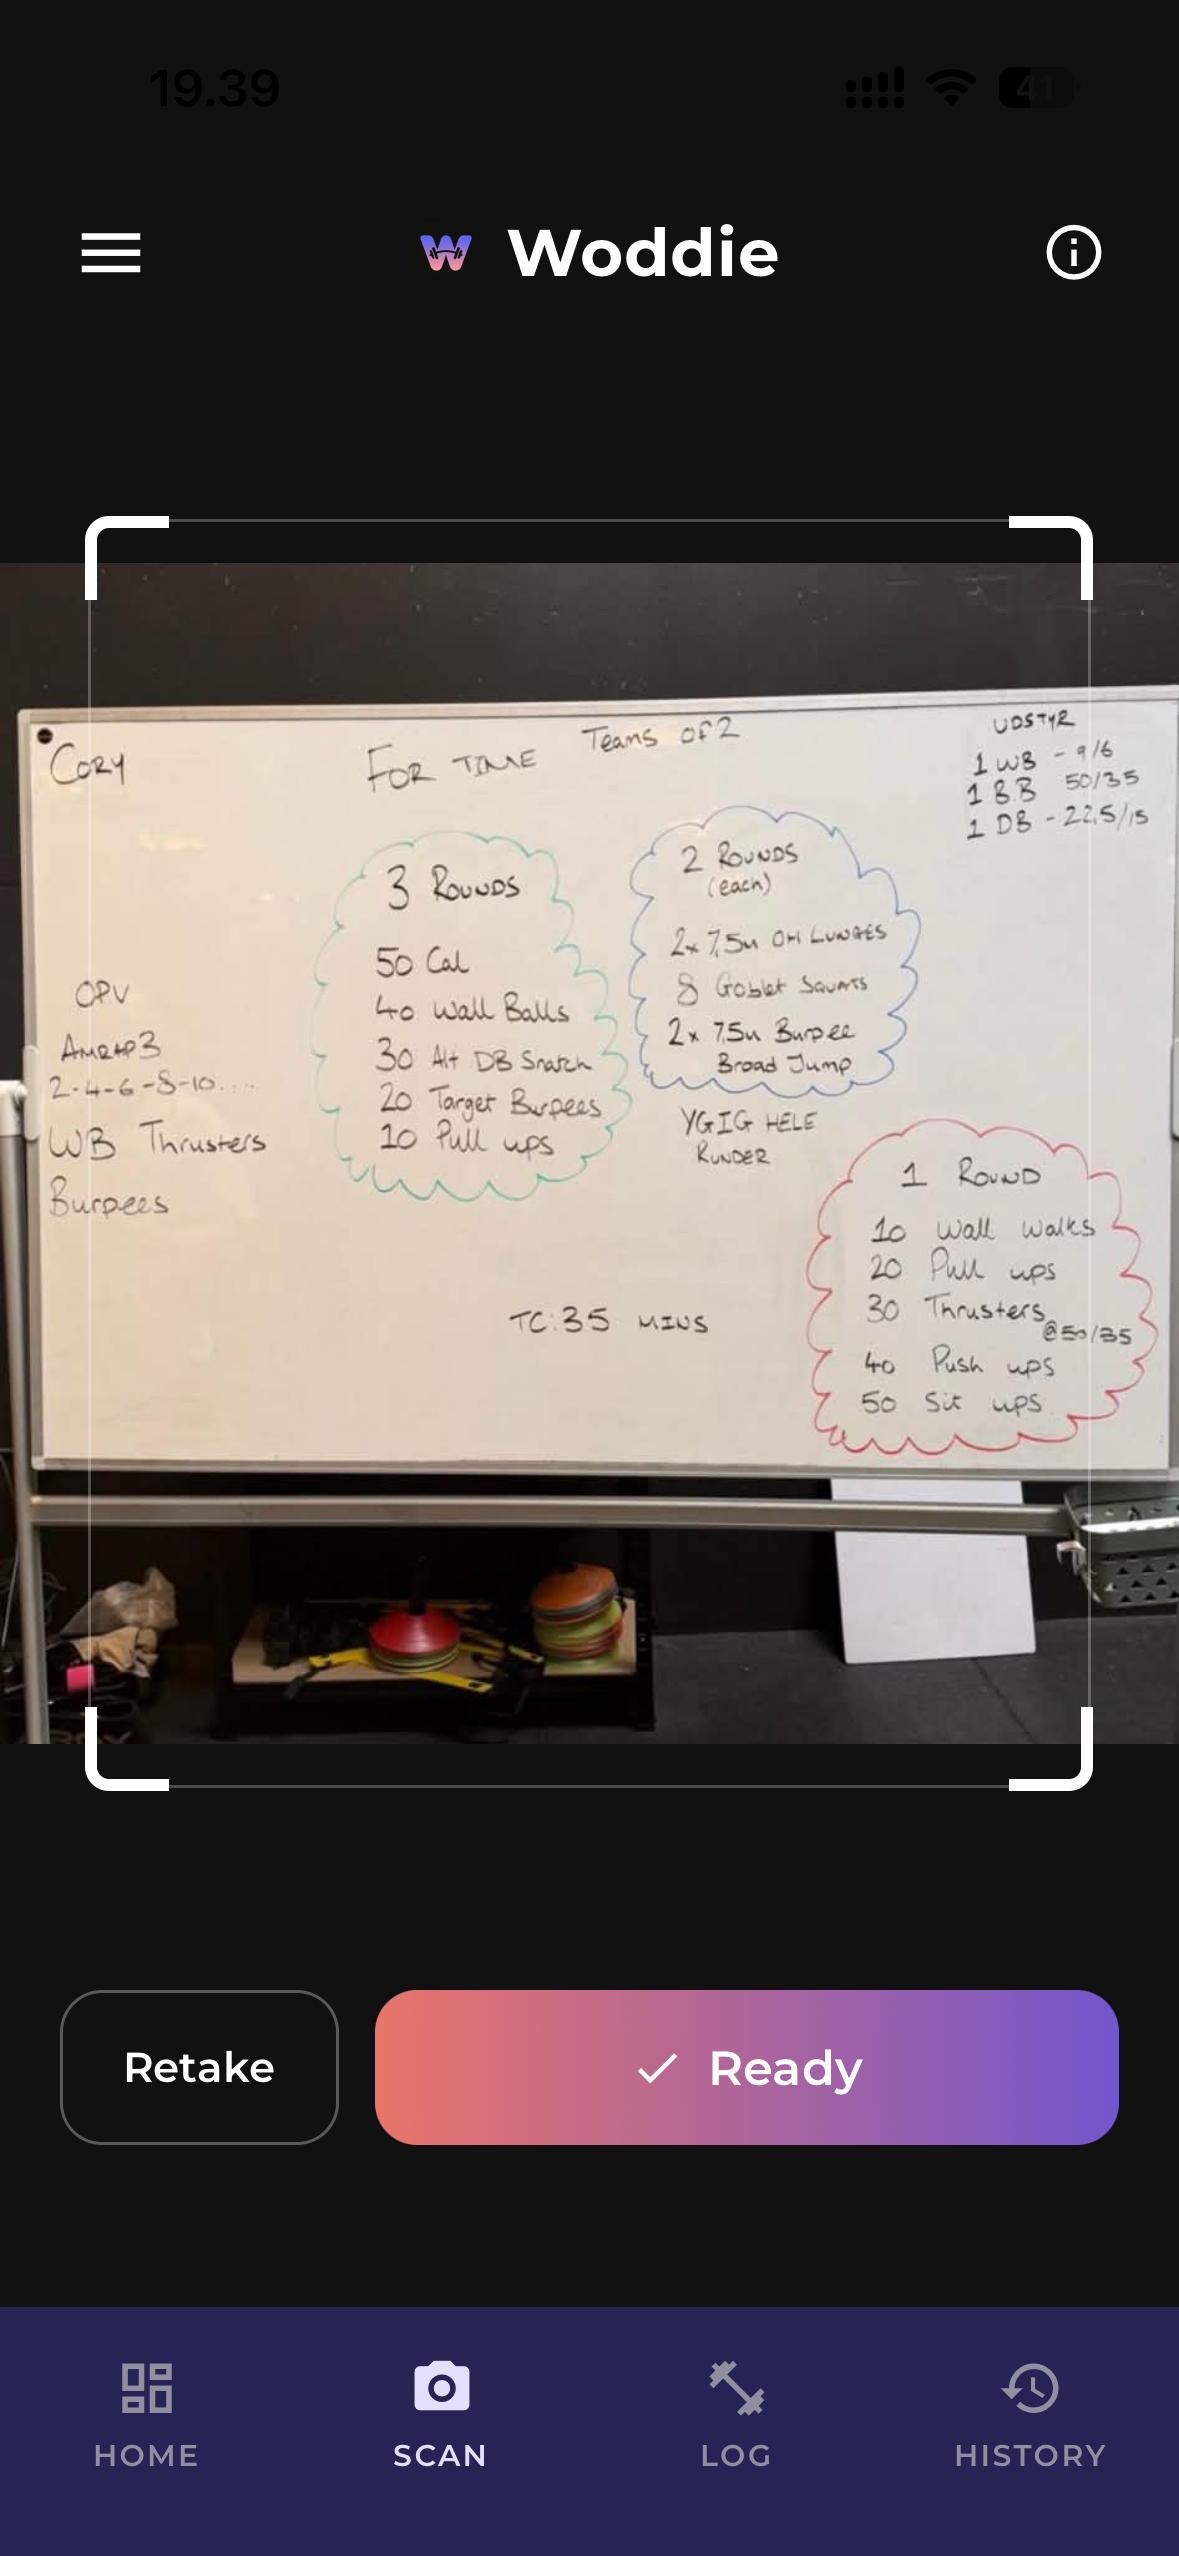 19.39
41
Woddie
Cory
FOR TIME
Teams of 2
UDSTYR
1 WB - 9/6
1 BB 50/35
1 DB - 22,5/15
OPV
AMRAP 3
2-4-6-8-10....
WB Thrusters
Burpees
3 ROUNDS
50 Cal
40 Wall Balls
30 Alt DB Snatch
20 Target Burpees
10 Pull ups
2 ROUNDS
(each)
2x 7,5m OH LUNGES
8 Goblet Squats
2x 7,5m Burpee
Broad Jump
YGIG HELE
RUNDER
1 ROUND
10 Wall Walks
20 Pull ups
30 Thrusters
@50/35
40 Push ups
50 Sit ups
TC: 35 MINS
Retake
Ready
HOME
SCAN
LOG
HISTORY